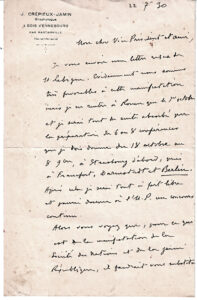 J. CRÉPIEUX-JAMIN
22 7bre 30
Mon cher Vice Président et ami
Je vous envoie une lettre reçue de
M. Evidemment nous sommes
très favorables à cette manifestation
mais je ne rentre à Rouen que le 1er octobre
et je serai tout de suite absorbé par
la préparation de 6 ou 8 conférences
que je dois donner du 18 octobre au
8 9bre, à Strasbourg d'abord, puis
à Francfort, Darmstadt et Berlin.
Après cela je serai tout à fait libre
et pourrai donner à un concours
continu.
Alors vous voyez que, pour ce que
est de la manifestation de la
Société des Nations et de la jeune
République, il faudrait vous substituer